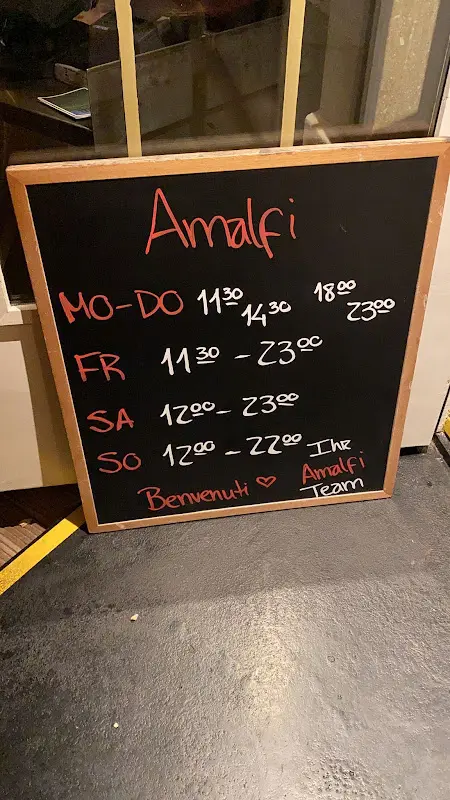 Amalfi
MO-DO 11³⁰ 14³⁰ 18⁰⁰ 23⁰⁰
FR 11³⁰ - 23⁰⁰
SA 12⁰⁰ - 23⁰⁰
SO 12⁰⁰ - 22⁰⁰
Benvenuti ♡
Ihr
Amalfi
Team